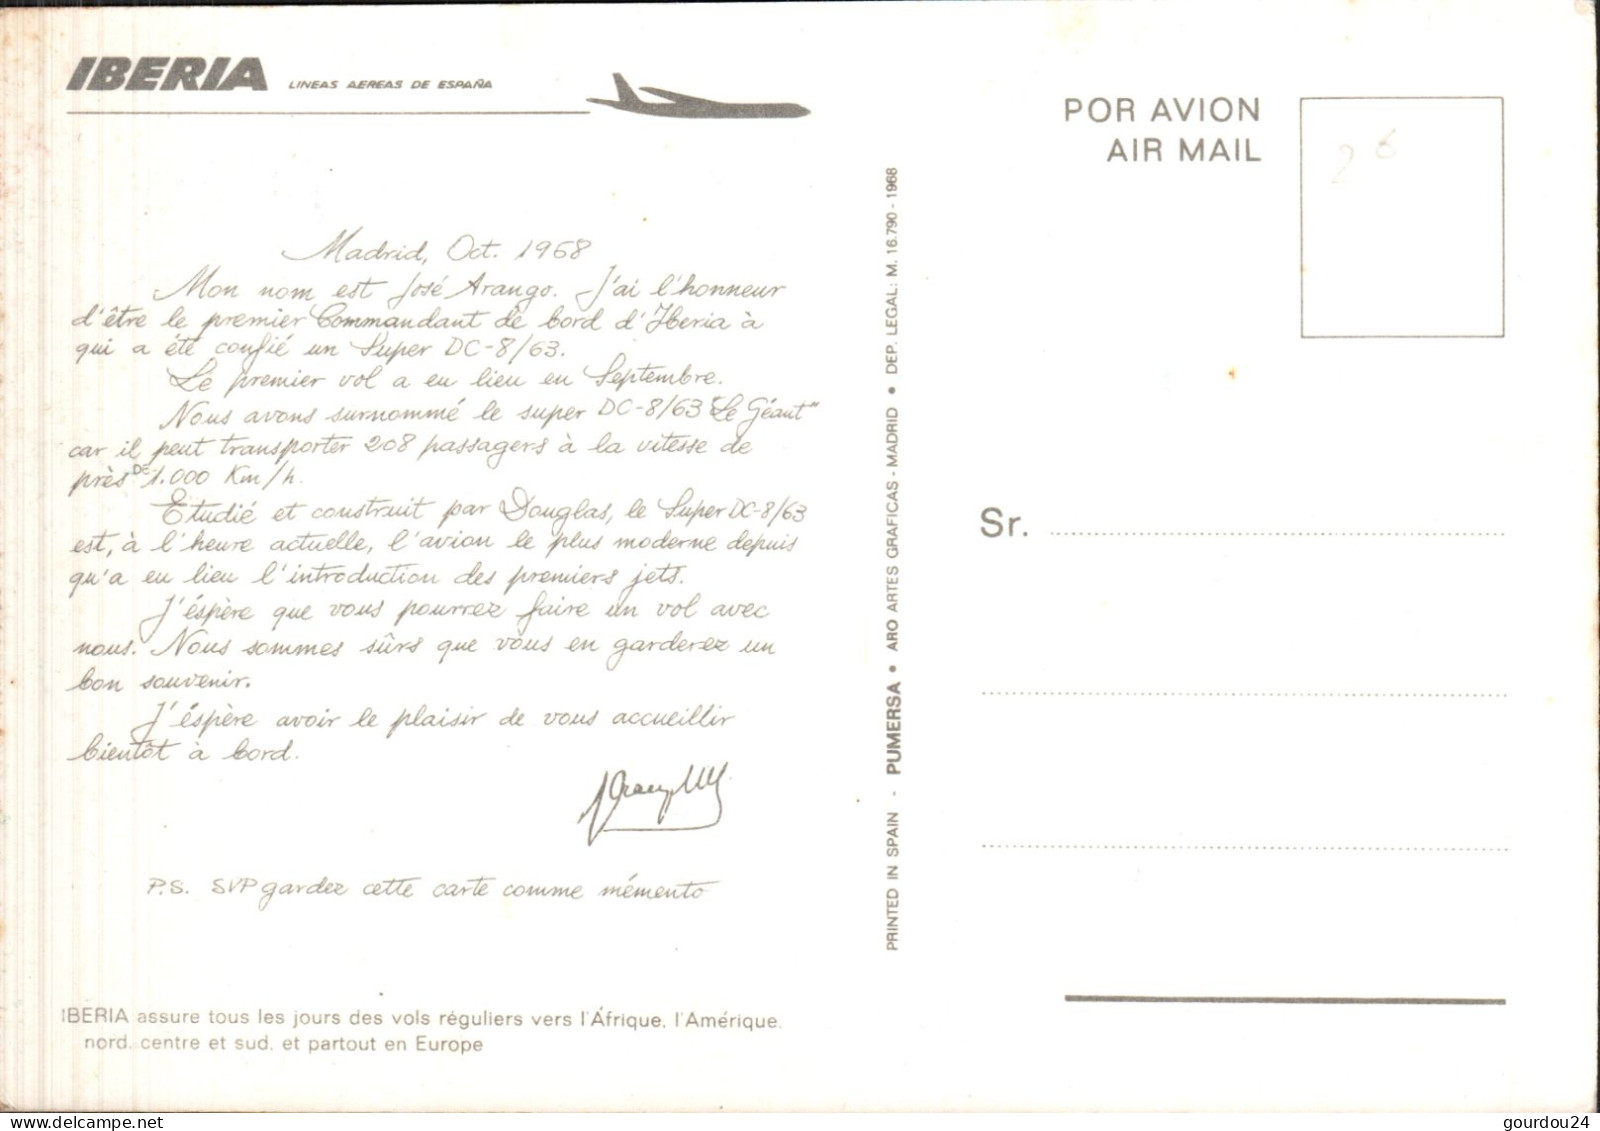 IBERIA LINEAS AEREAS DE ESPAÑA
Madrid, Oct. 1968
Mon nom est José Arango. J'ai l'honneur
d'être le premier Commandant de bord d'Iberia à
qui a été confié un Super DC-8/63.
Le premier vol a eu lieu en Septembre.
Nous avons surnommé le super DC-8/63 "Le Géant"
car il peut transporter 208 passagers à la vitesse de
près DE 1.000 Km/h.
Etudié et construit par Douglas, le Super DC-8/63
est, à l'heure actuelle, l'avion le plus moderne depuis
qu'a eu lieu l'introduction des premiers jets.
J'éspère que vous pourrez faire un vol avec
nous. Nous sommes sûrs que vous en garderez un
bon souvenir.
J'éspère avoir le plaisir de vous accueillir
bientôt à bord.
P.S. SVP gardez cette carte comme mémento
IBERIA assure tous les jours des vols réguliers vers l'Áfrique, l'Amérique,
nord, centre et sud, et partout en Europe
PRINTED IN SPAIN - PUMERSA • ARO ARTES GRAFICAS - MADRID • DEP. LEGAL: M. 16.790 - 1968
POR AVION
AIR MAIL
26
Sr.
gourdou24